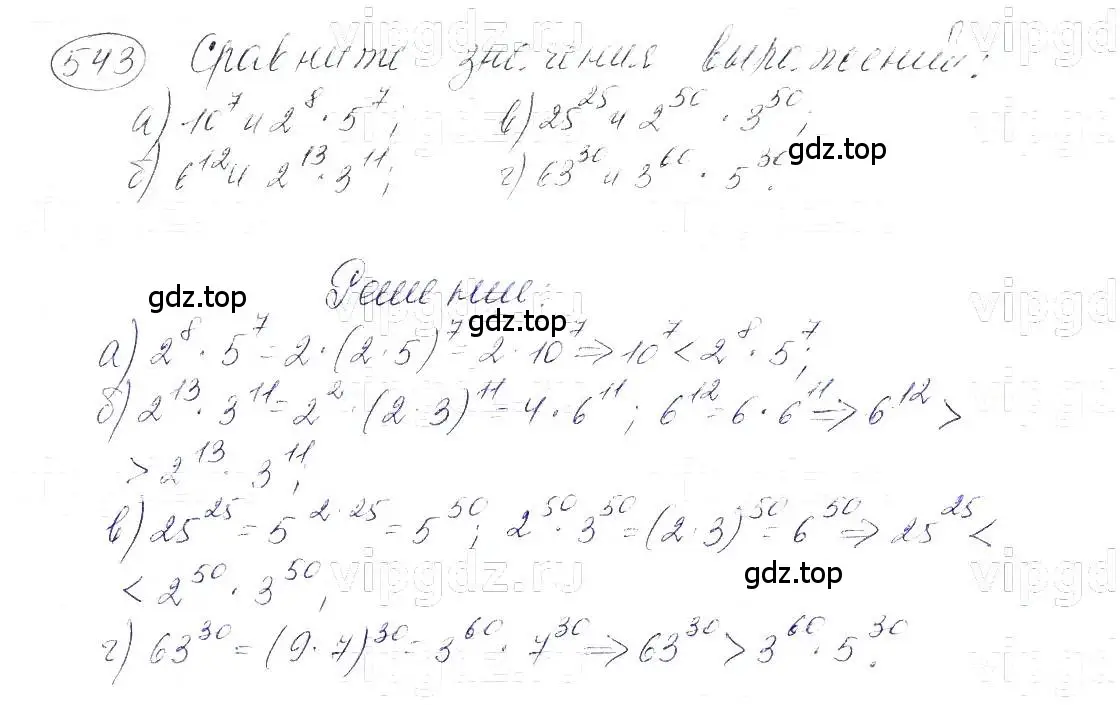 543 Сравните значения выражений:
а) 10⁷ и 2⁸ · 5⁷; в) 25²⁵ и 2⁵⁰ · 3⁵⁰;
б) 6¹² и 2¹³ · 3¹¹; г) 63³⁰ и 3⁶⁰ · 5³⁰.
gdz.top
Решение:
gdz.top
gdz.top
а) 2⁸ · 5⁷ = 2 · (2 · 5)⁷ = 2 · 10⁷ ⇒ 10⁷ < 2⁸ · 5⁷;
б) 2¹³ · 3¹¹ = 2² · (2 · 3)¹¹ = 4 · 6¹¹; 6¹² = 6 · 6¹¹ ⇒ 6¹² >
> 2¹³ · 3¹¹;
в) 25²⁵ = 5²˙²⁵ = 5⁵⁰; 2⁵⁰ · 3⁵⁰ = (2 · 3)⁵⁰ = 6⁵⁰ ⇒ 25²⁵ <
< 2⁵⁰ · 3⁵⁰;
gdz.top
г) 63³⁰ = (9 · 7)³⁰ = 3⁶⁰ · 7³⁰ ⇒ 63³⁰ > 3⁶⁰ · 5³⁰.
vipgdz.ru
vipgdz.ru
vipgdz.ru
vipgdz.ru